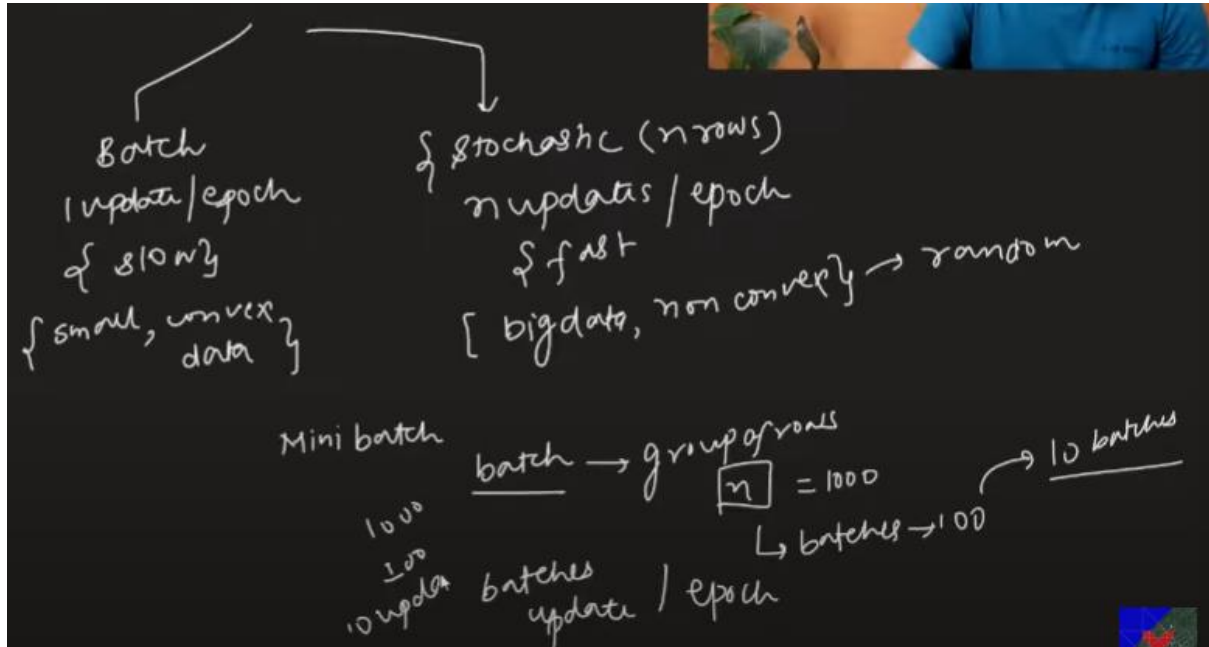 Batch
1 update/epoch
{ slow }
{ small, convex,
data }
{ stochastic (n rows)
n updates / epoch
{ fast
[ big data, non convex } → random
Mini batch
batch → group of rows
n = 1000
↳ batches → 100 → 10 batches
1000
100
10 updat
batches
update / epoch